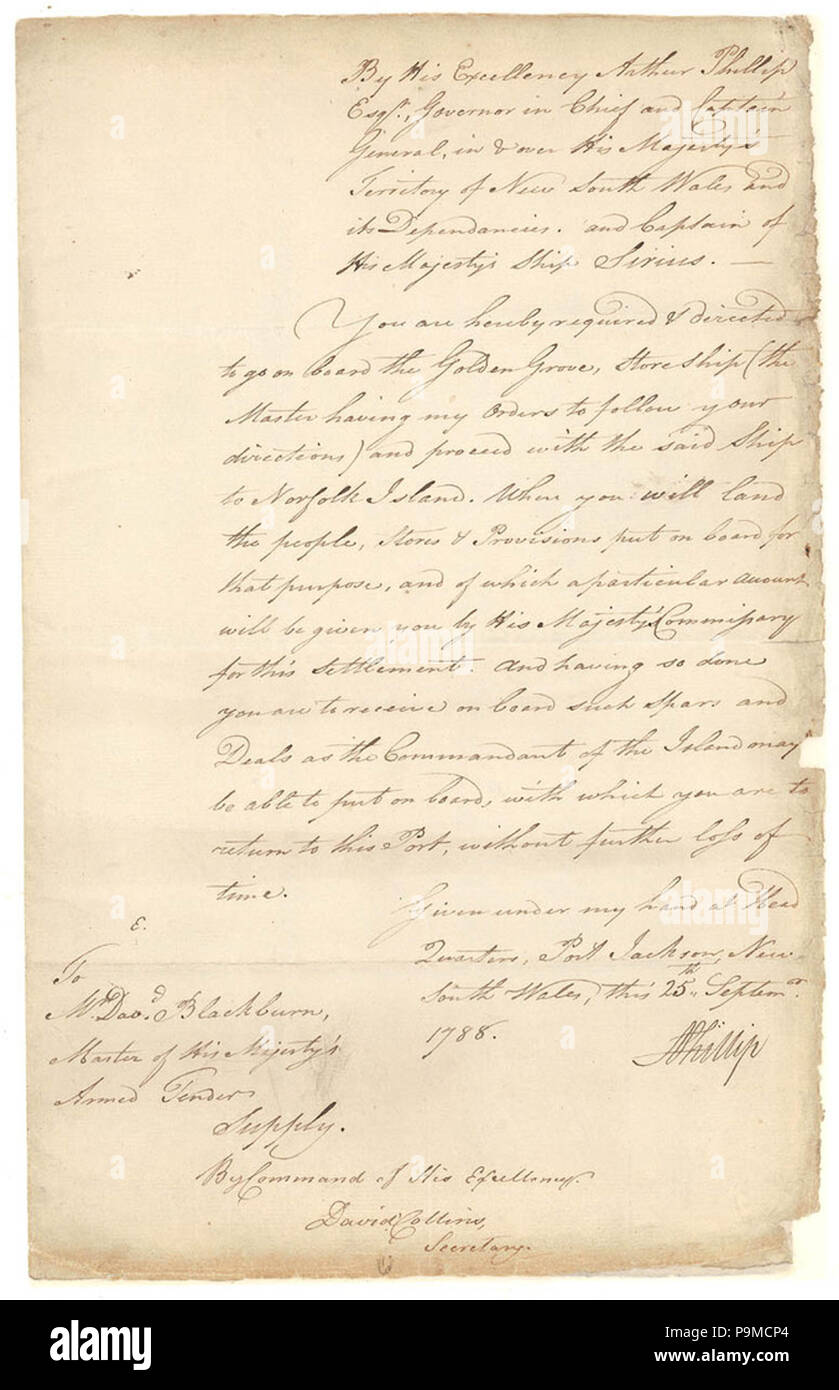 By His Excellency Arthur Phillip
Esqr., Governor in Chief and Captain
General, in & over His Majesty's
Territory of New South Wales and
its Dependancies. and Captain of
His Majesty's Ship Sirius. —
You are hereby required & directed
to go on board the Golden Grove, Store Ship (the
Master having my Orders to follow your
directions) and proceed with the said Ship
to Norfolk Island. When you will land
the people, Stores & Provisions put on board for
that purpose, and of which a particular account
will be given you by His Majesty's Commissary
for this Settlement. And having so done
you are to receive on board such Spars and
Deals as the Commandant of the Island may
be able to put on board, with which you are to
return to this Port, without further loss of
time.
Given under my hand at Head
Quarters, Port Jackson, New
South Wales, this 25th Septemr.
1788.
APhillip
E.
To
Mr. Davd. Blackburn,
Master of His Majesty's
Armed Tender
Supply.
By Command of His Excellency.
David Collins,
Secretary.
alamy
Image ID: P9MCP4
www.alamy.com